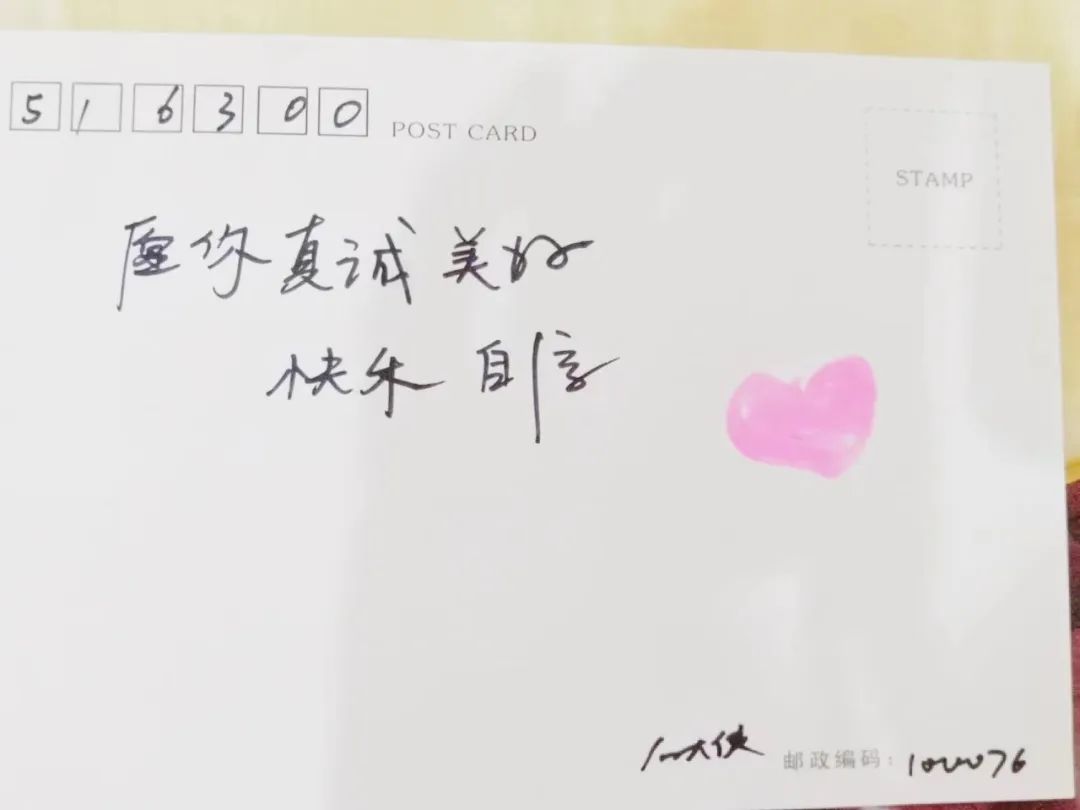 516300 POST CARD
STAMP
愿你真诚美好
快乐 自信
大侠 邮政编码: 100076